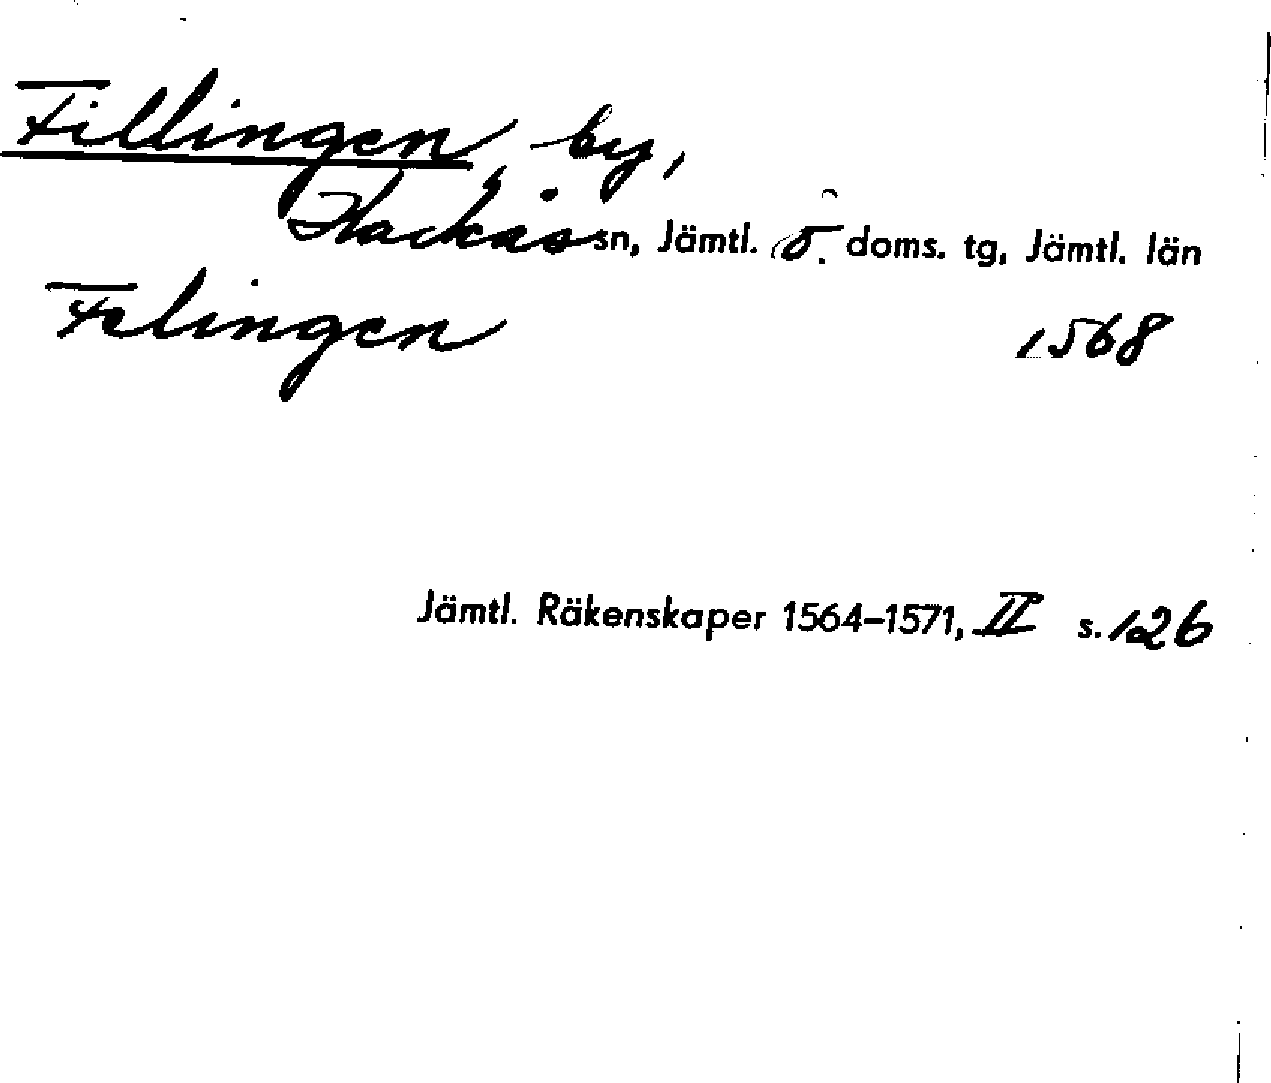 Fillingen, by,
Hackås sn, Jämtl. ö. doms. tg, Jämtl. län
Felingen 1568
Jämtl. Räkenskaper 1564–1571, II s. 126